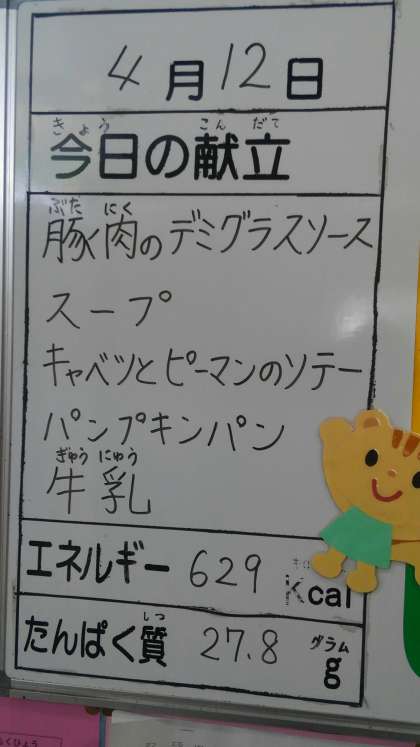 4月12日
きょう こんだて
今日の献立
ぶた にく
豚肉のデミグラスソース
スープ
キャベツとピーマンのソテー
パンプキンパン
ぎゅう にゅう
牛乳
エネルギー 629 Kcal
しつ グラム
たんぱく質 27.8 g
くひょう